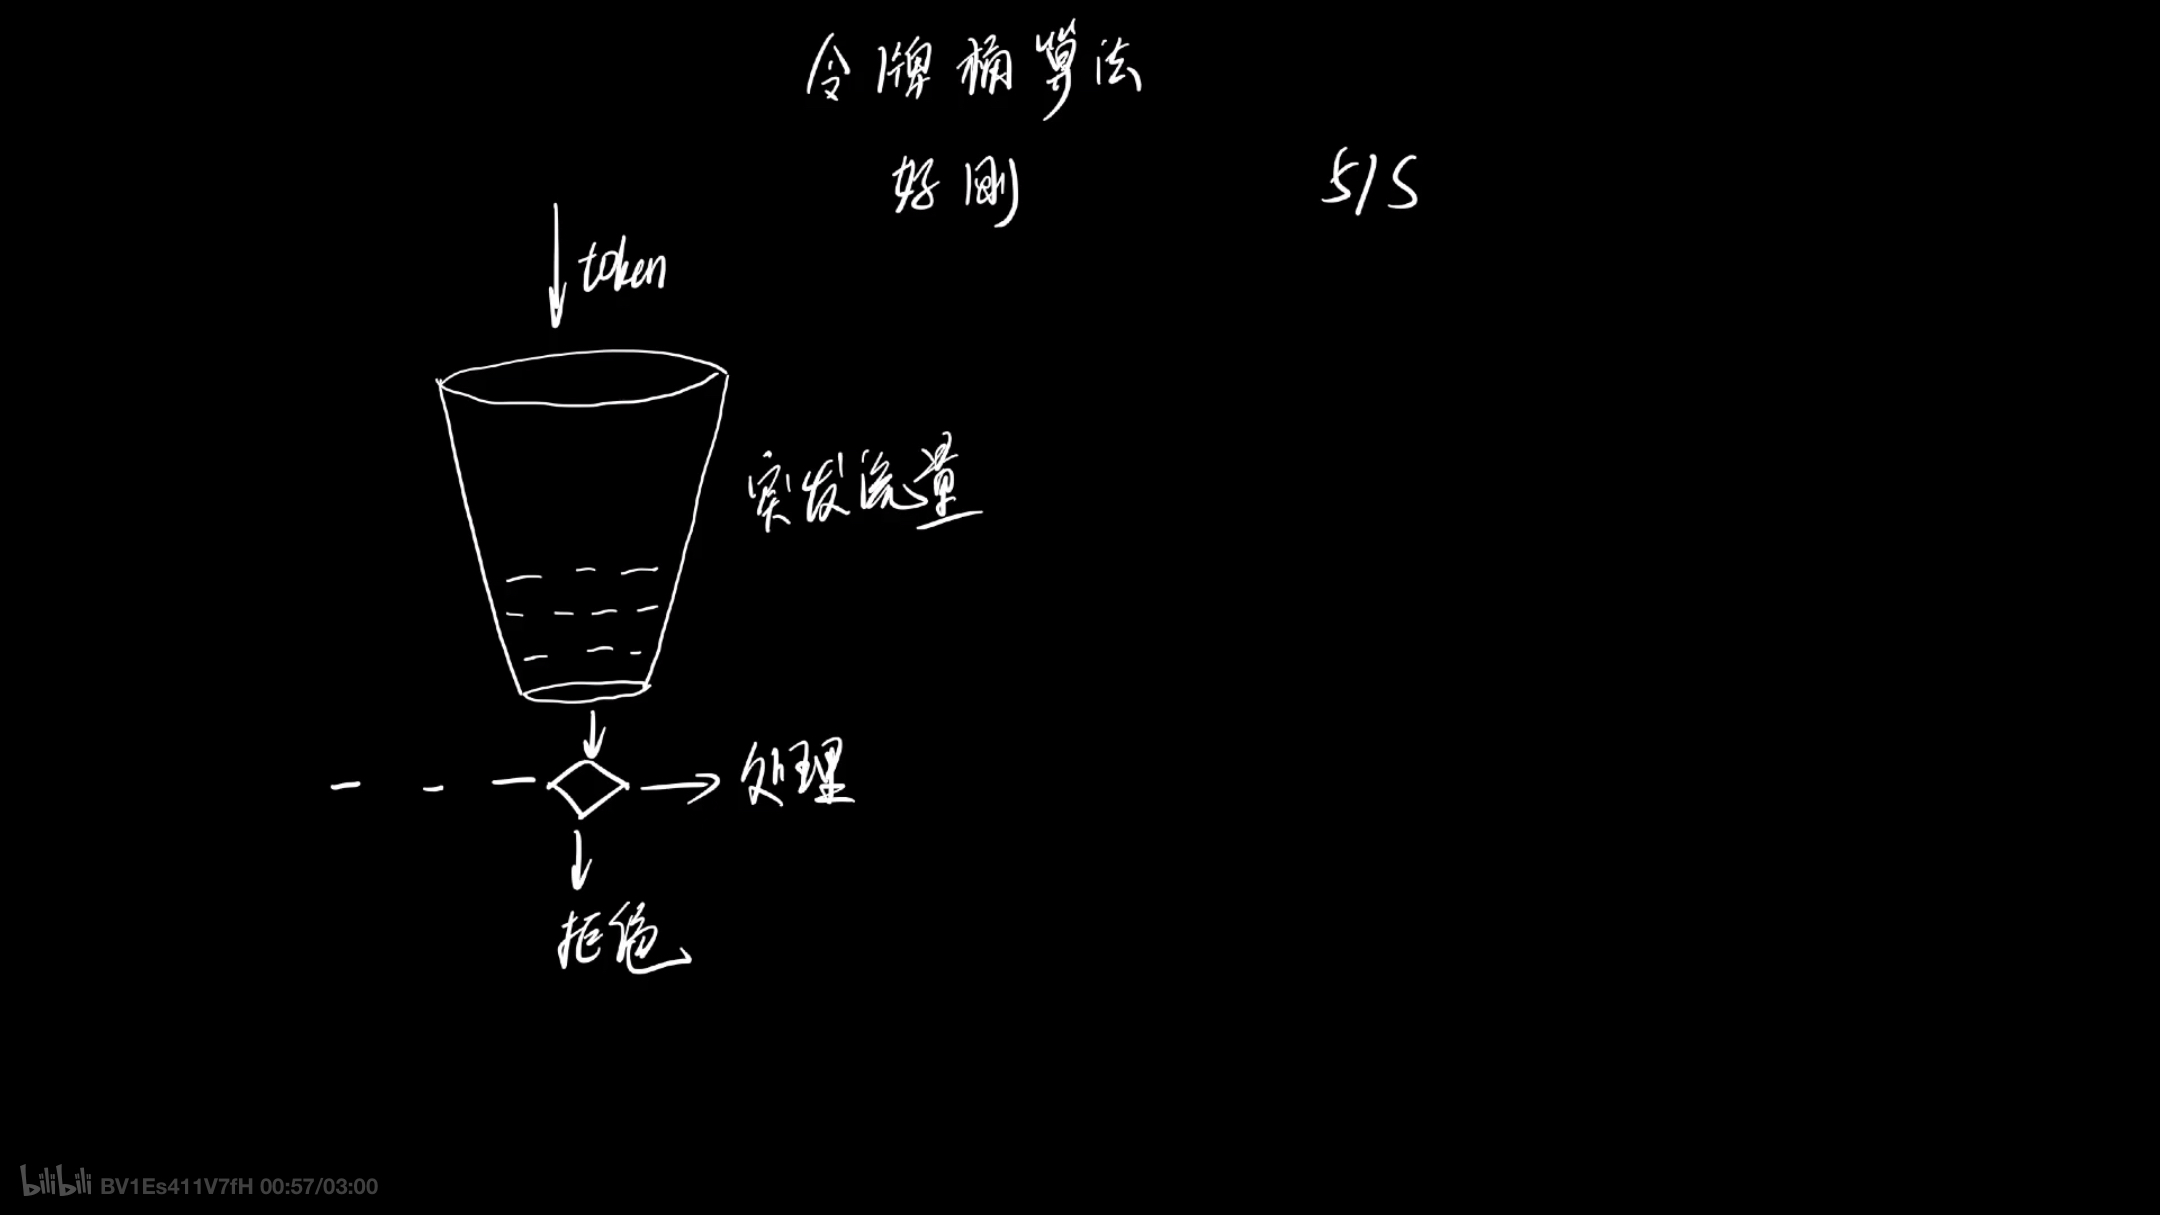 令牌桶算法
好刚 5/S
token
突发流量
处理
拒绝
bilibili BV1Es411V7fH 00:57/03:00